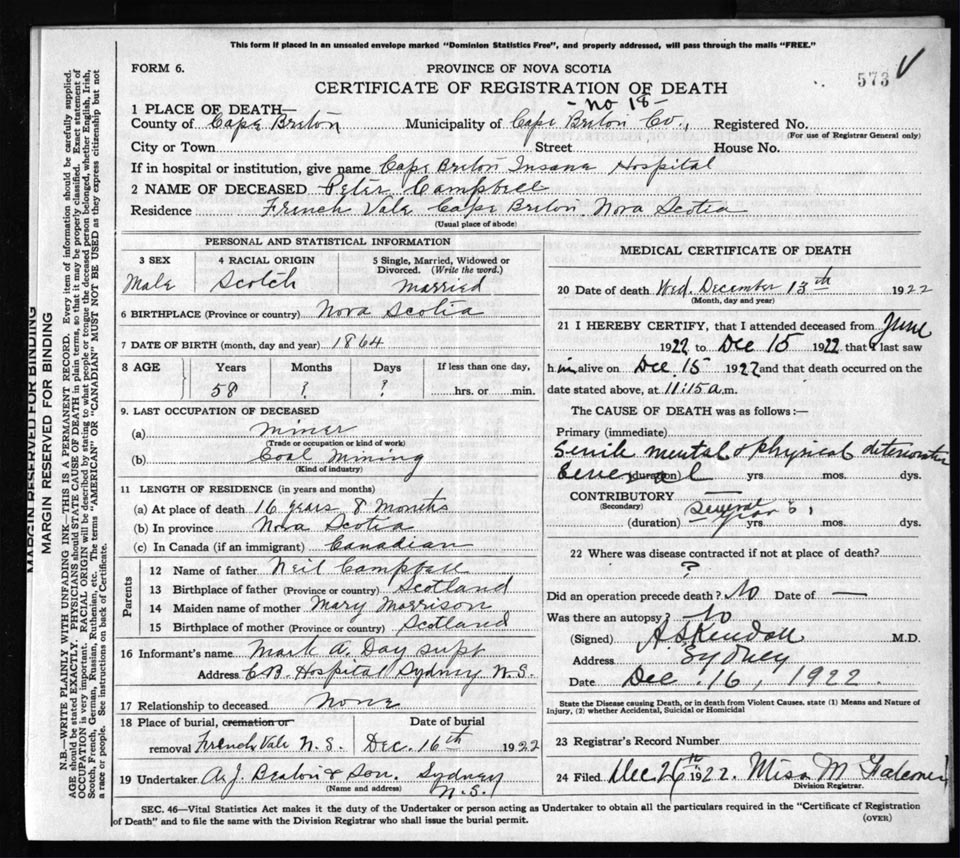 This form if placed in an unsealed envelope marked "Dominion Statistics Free", and properly addressed, will pass through the mails "FREE."
FORM 6.
PROVINCE OF NOVA SCOTIA
573
CERTIFICATE OF REGISTRATION OF DEATH
- No 18 -
1 PLACE OF DEATH—
County of Cape Breton Municipality of Cape Breton Co., Registered No.
(For use of Registrar General only)
City or Town Street House No.
If in hospital or institution, give name Cape Breton Insane Hospital
2 NAME OF DECEASED Peter Campbell
Residence French Vale Cape Breton Nova Scotia
(Usual place of abode)
PERSONAL AND STATISTICAL INFORMATION
3 SEX 4 RACIAL ORIGIN 5 Single, Married, Widowed or Divorced. (Write the word.)
Male Scotch Married
6 BIRTHPLACE (Province or country) Nova Scotia
7 DATE OF BIRTH (month, day and year) 1864
8 AGE Years Months Days If less than one day,
58 ? ? hrs. or min.
9. LAST OCCUPATION OF DECEASED
(a) Miner
(Trade or occupation or kind of work)
(b) Coal Mining
(Kind of industry)
11 LENGTH OF RESIDENCE (in years and months)
(a) At place of death 16 years 8 months
(b) In province Nova Scotia
(c) In Canada (if an immigrant) Canadian
Parents
12 Name of father Neil Campbell
13 Birthplace of father (Province or country) Scotland
14 Maiden name of mother Mary Morrison
15 Birthplace of mother (Province or country) Scotland
16 Informant's name Mark A. Day supt
Address C.B. Hospital Sydney N.S.
17 Relationship to deceased None
18 Place of burial, cremation or Date of burial
removal French Vale N.S. Dec. 16th 1922
19 Undertaker A. J. Beaton & Son. Sydney
(Name and address) N.S.
MEDICAL CERTIFICATE OF DEATH
20 Date of death Wed. December 13th 1922
(Month, day and year)
21 I HEREBY CERTIFY, that I attended deceased from June
1922 to Dec 15 1922 that I last saw
him alive on Dec. 15 1922 and that death occurred on the
date stated above, at 11:15 a.m.
The CAUSE OF DEATH was as follows:—
Primary (immediate)
Senile mental & physical deterioration
(duration) yrs. mos. dys.
CONTRIBUTORY
(Secondary) several
(duration) years yrs. mos. dys.
22 Where was disease contracted if not at place of death?
?
Did an operation precede death? No Date of —
Was there an autopsy? No
(Signed) A S Kendall M.D.
Address Sydney
Date Dec 16, 1922.
State the Disease causing Death, or in death from Violent Causes, state (1) Means and Nature of
Injury, (2) whether Accidental, Suicidal or Homicidal
23 Registrar's Record Number
24 Filed Dec 26th 1922. Miss M Falconer
Division Registrar.
SEC. 46—Vital Statistics Act makes it the duty of the Undertaker or person acting as Undertaker to obtain all the particulars required in the "Certificate of Registration
of Death" and to file the same with the Division Registrar who shall issue the burial permit.
(OVER)
MARGIN RESERVED FOR BINDING
MARGIN RESERVED FOR BINDING
N.B.—WRITE PLAINLY WITH UNFADING INK—THIS IS A PERMANENT RECORD. Every item of information should be carefully supplied.
AGE should be stated EXACTLY. PHYSICIANS should STATE CAUSE OF DEATH in plain terms, so that it may be properly classified. Exact statement of
OCCUPATION is very important. RACIAL ORIGIN will be described by stating to what people or tongue the deceased person belonged, whether English, Irish,
Scotch, French, German, Russian, Ruthenian, etc. The terms "AMERICAN" OR "CANADIAN" MUST NOT BE USED as they express citizenship but not
a race or people. See instructions on back of Certificate.